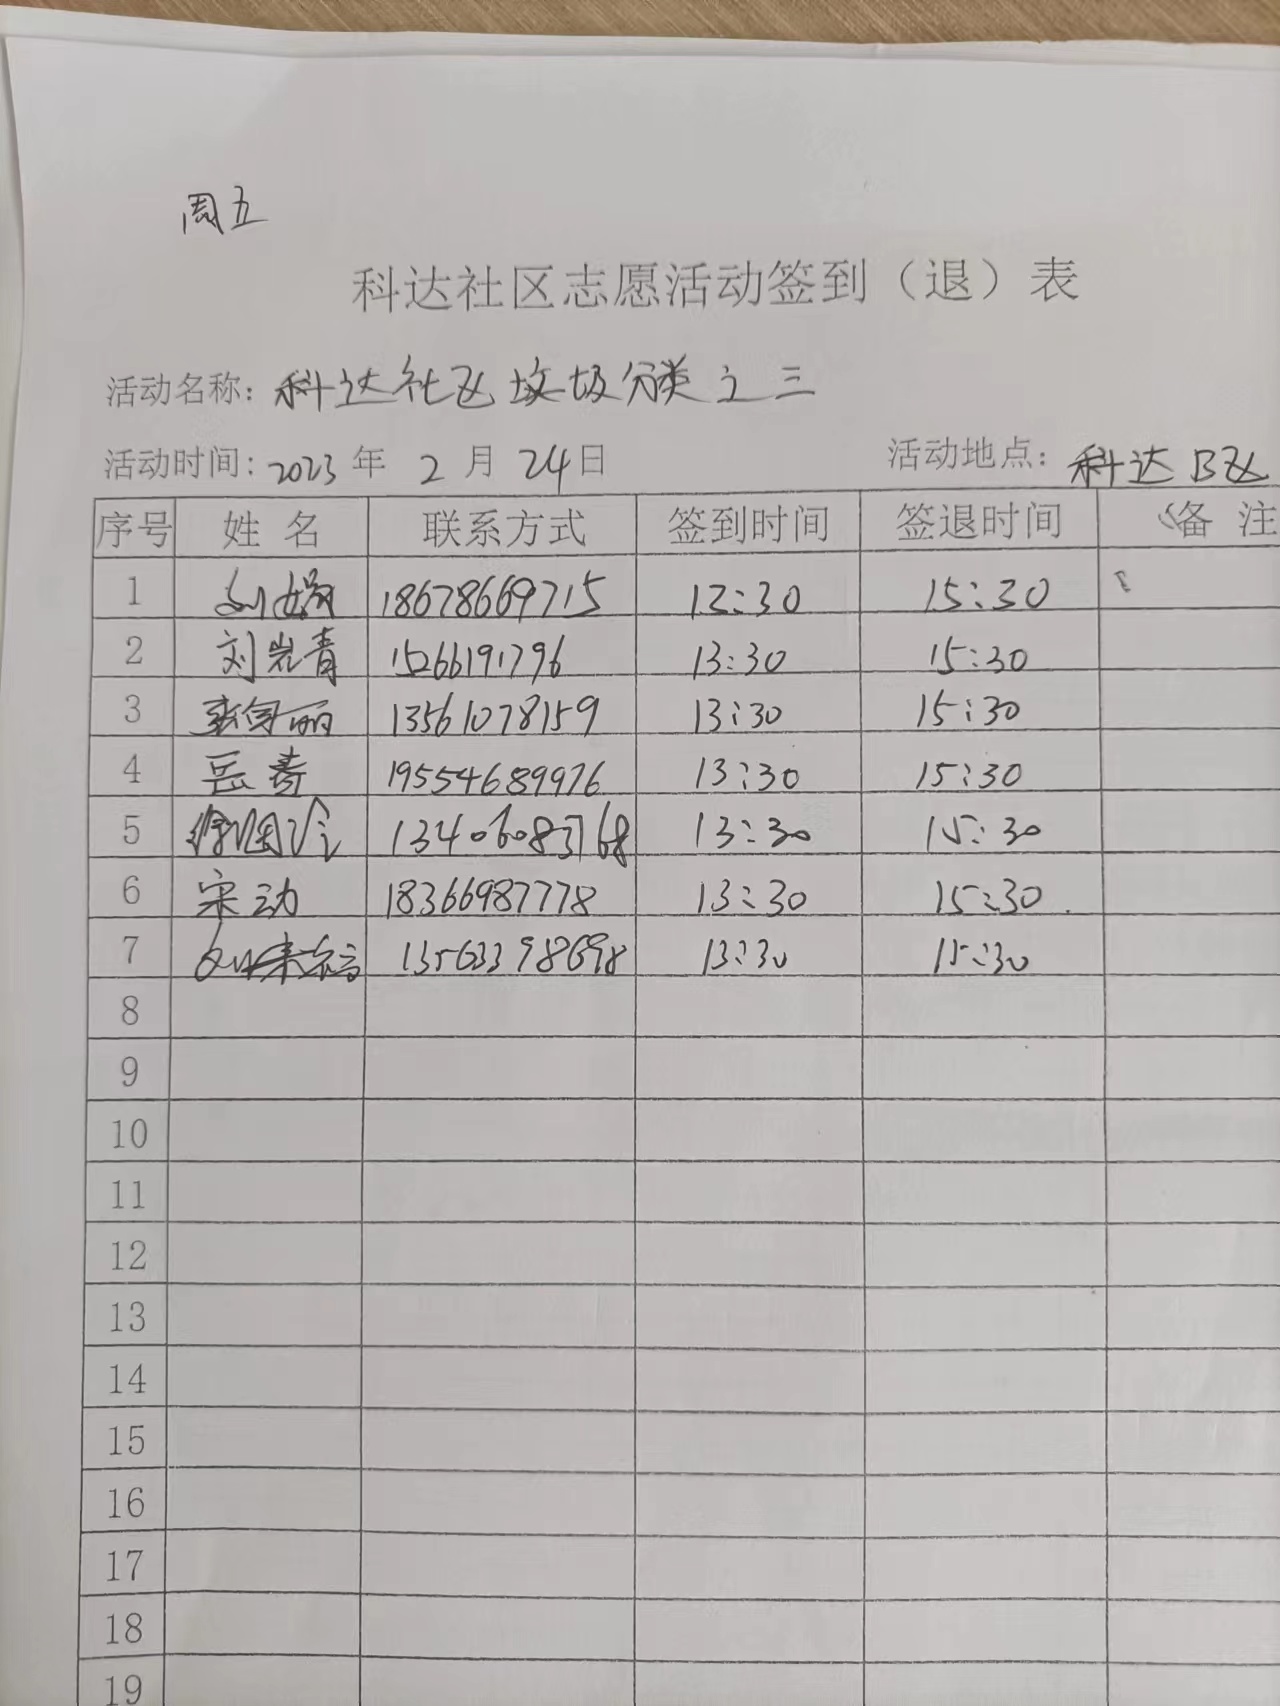 周五
科达社区志愿活动签到（退）表
活动名称：科达社区垃圾分类之三
活动时间：2023年2月24日 活动地点：科达B区
序号 姓名 联系方式 签到时间 签退时间 备注
1 18678669715 12:30 15:30
2 刘岩青 15266191796 13:30 15:30
3 13561078159 13:30 15:30
4 岳青 19554689976 13:30 15:30
5 13406083768 13:30 15:30
6 宋动 18366987778 13:30 15:30
7 13563398698 13:30 15:30
8
9
10
11
12
13
14
15
16
17
18
19